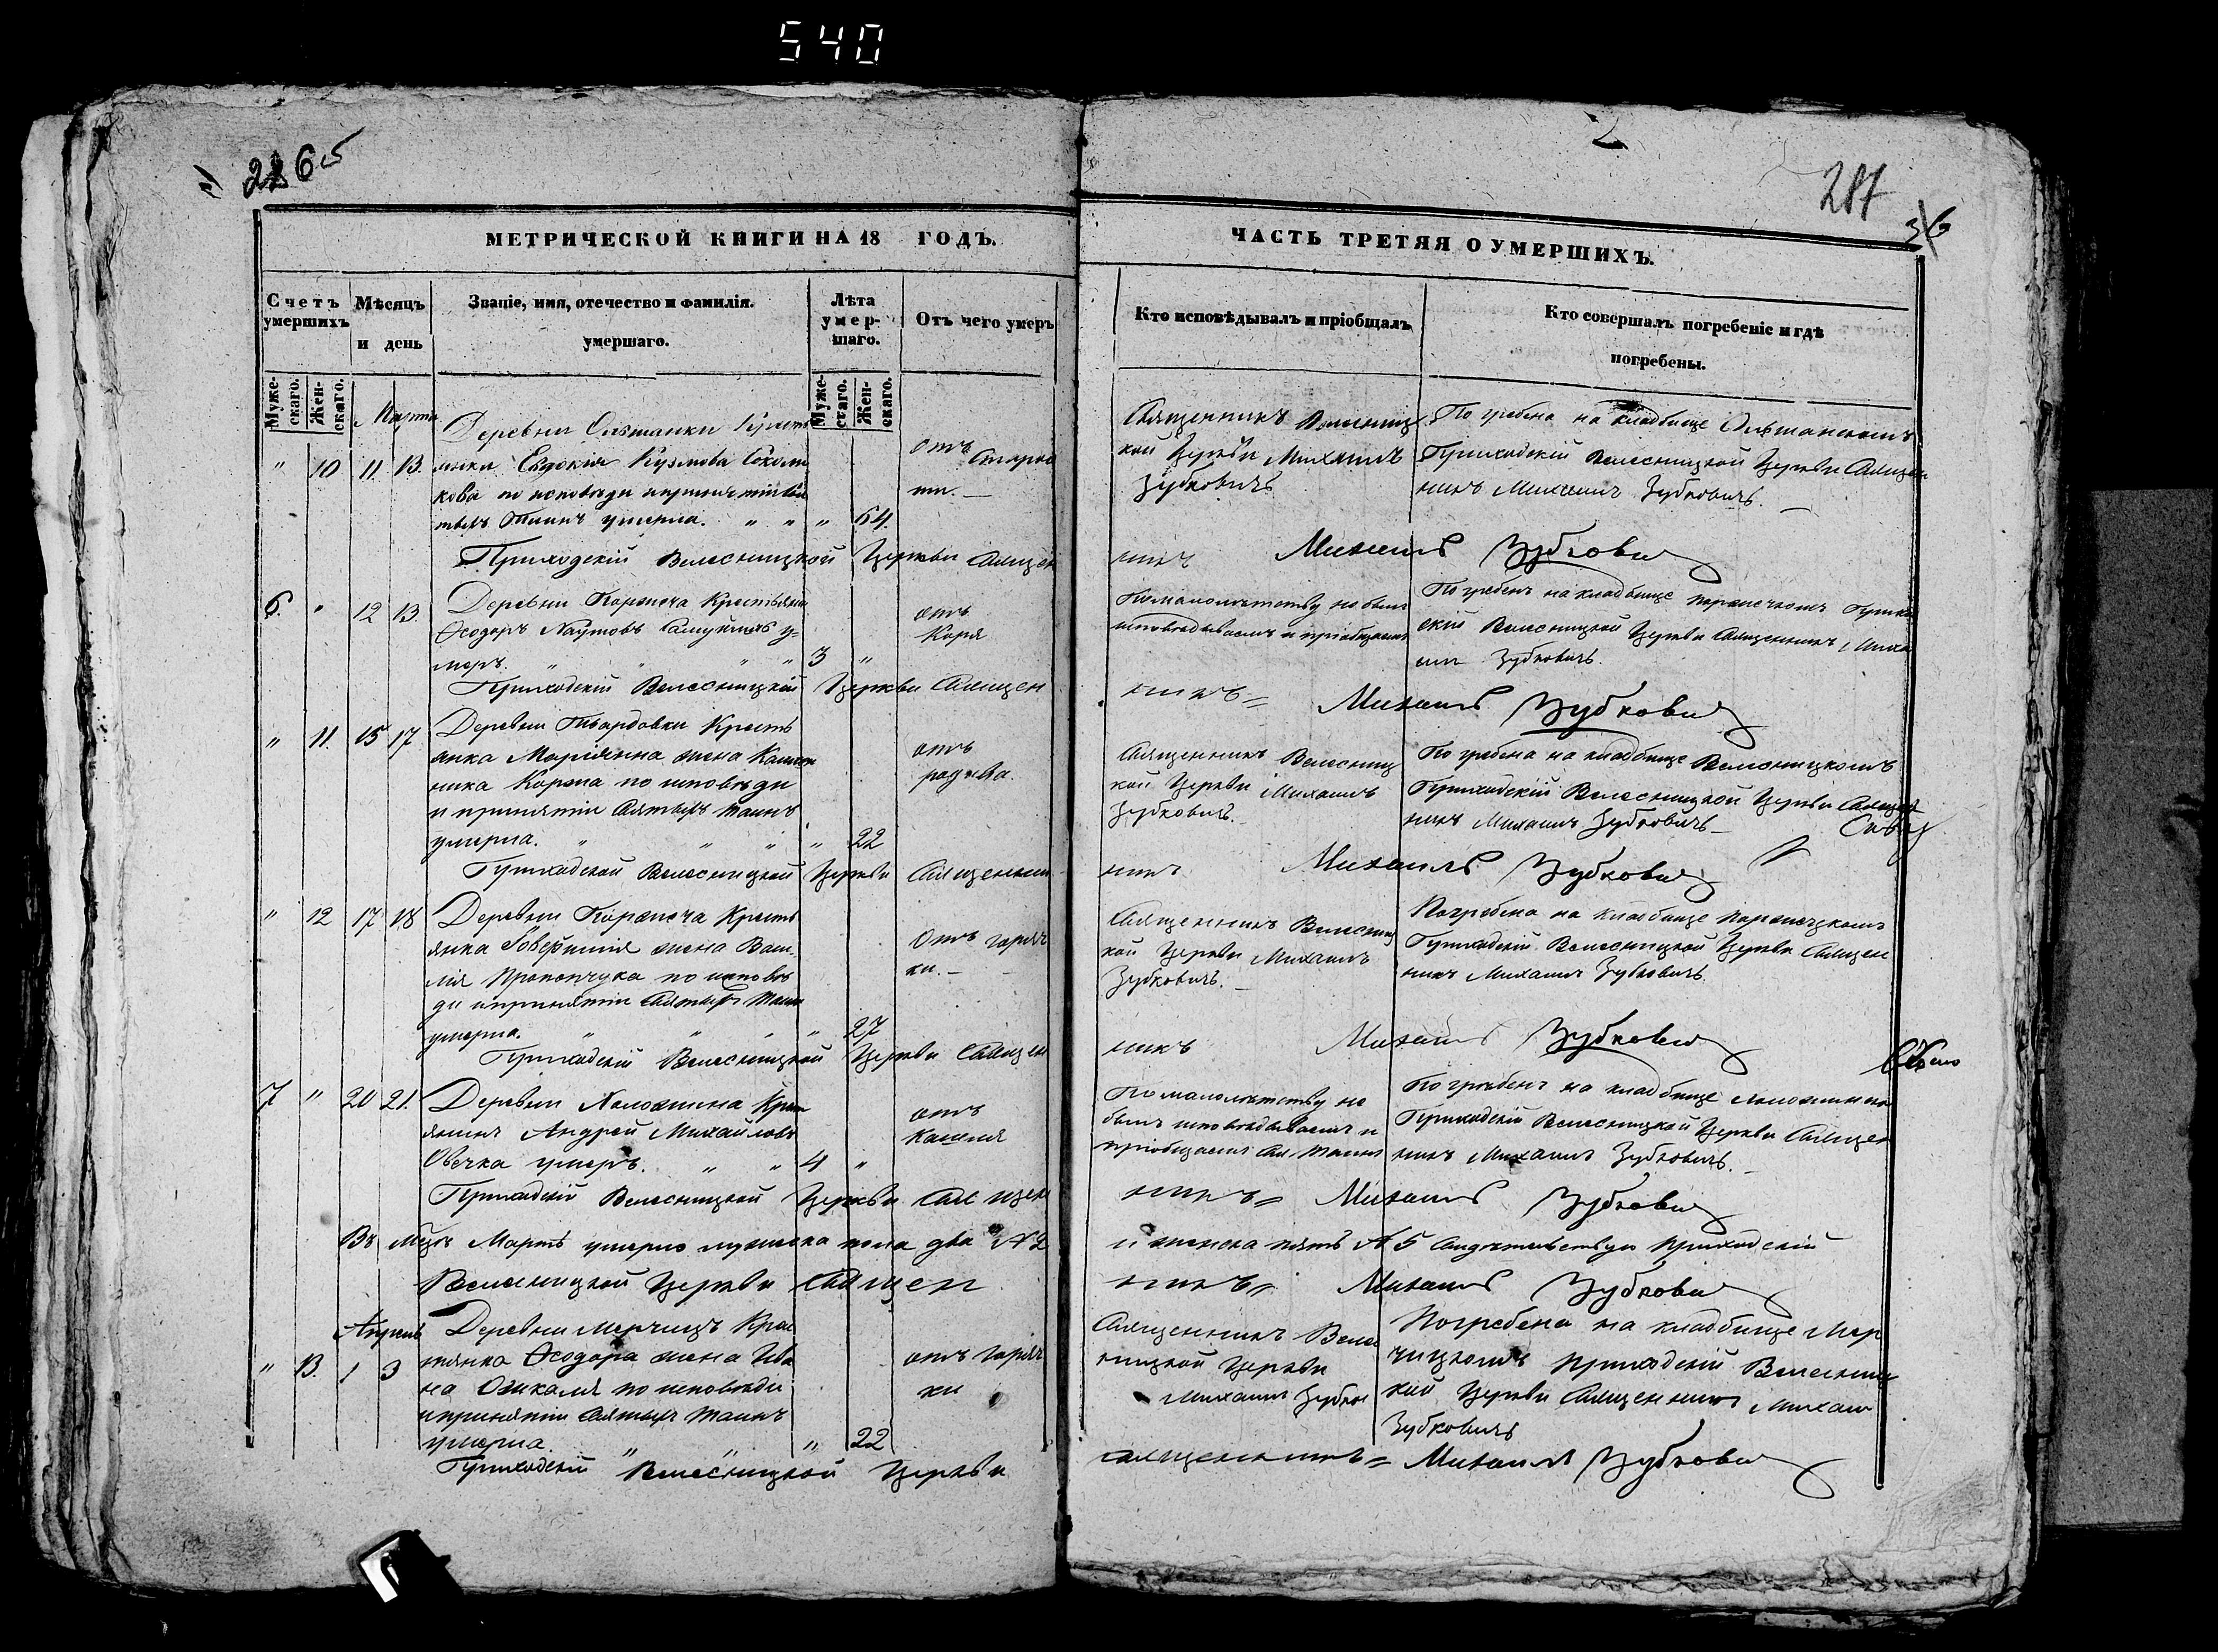 540
2265
287
36
МЕТРИЧЕСКОЙ КНИГИ НА 18 ГОДЪ.
ЧАСТЬ ТРЕТЯЯ О УМЕРШИХЪ.
Счетъ умершихъ
Мѣсяцъ и день
Званіе, имя, отечество и фамилія. умершаго.
Лѣта умер-шаго.
Отъ чего умеръ
Кто исповѣдывалъ и пріобщалъ
Кто совершалъ погребеніе и гдѣ погребены.
Муже-скаго.
Жен-скаго.
Муже-скаго.
Жен-скаго.
Марта
" 10 11 13.
Деревни Ольманки Кресть
янка Евдокія Кузмова
кова по исповѣди и принятіи Свя
тыхъ Таинъ умерла. " " " 64.
отъ старос
ти.
Священникъ Велесниц
кой Церкви Михаилъ
Зубковичъ
Погребена на кладбище Ольманскомъ
Приходскій Велесницкой Церкви Священ
никъ Михаилъ Зубковичъ.
Приходскій Велесницкой Церкви Священ
никъ Михаилъ Зубкович
6. " 12 13.
Деревни Порѣпеча Крестьянин
Ѳеодоръ Наумовъ у-
меръ. " " " 3 "
отъ
Коря
По малолѣтству не былъ
исповѣдываемъ и пріобщаемъ
Погребенъ на кладбище Прихо
скій Велесницкой Церкви Священникъ Миха
илъ Зубковичъ.
Приходскій Велесницкій Церкви Священ
никъ= Михаилъ Зубкович
" 11. 15 17
Деревни Твардовки Кресть
янка Маріянна жена
ника Корпа по исповѣди
и принятіи Святыхъ Таинъ
умерла. " " " " 22
отъ
родива.
Священникъ Велесниц
кой Церкви Михаилъ
Зубковичъ.
Погребена на кладбище Велесницкомъ
Приходскій Велесницкой Церкви Священ
никъ Михаилъ Зубковичъ
Приходской Велесницкой Церкви Священник
никъ Михаилъ Зубкович
" 12 17 18
Деревни Порѣпеча Кресть
янка жена Васи
лія Прокопчука по исповѣ
ди и принятіи Святыхъ Таинъ
умерла. " " " " 27
Отъ горяч
ки.
Священникъ Велесниц
кой Церкви Михаилъ
Зубковичъ.
Погребена на кладбище
Приходскій Велесницкой Церкви Священ
никъ Михаилъ Зубковичъ
Приходскій Велесницкой Церкви Священ
никъ Михаилъ Зубкович
7 " 20 21.
Деревни Холожина Крест
янинъ Андрей Михайловъ
Овечка умеръ. " " 4 "
отъ
Кашля
По малолѣтству не
былъ исповѣдываемъ и
пріобщаемъ Свя. Таинъ
Погребенъ на кладбище
Приходскій Велесницкой Церкви Священ
никъ Михаилъ Зубковичъ.
Приходскій Велесницкой Церкви Священ
никъ= Михаилъ Зубкович
Въ Мцѣ Мартѣ умерло мужеска пола два № 2
и женска пять № 5 Свидѣтельствуи Приходскій
Велесницкой Церкви Священ
никъ= Михаилъ Зубкович
Апрель
" 13. 1 3
Деревни Мерчицъ Крес
тянка Ѳеодора жена Ива
на по исповѣди
и принятіи Святыхъ Таинъ
умерла. " " " 22
отъ горяч
ки
Священникъ Велес
ницкой Церкви
Михаилъ Зубков
Погребена на кладбище Мер
чицкомъ Приходскій Велесниц
кой Церкви Священникъ Михаил
Зубковичъ
Приходскій Велесницкой Церкви
священникъ= Михаилъ Зубкович